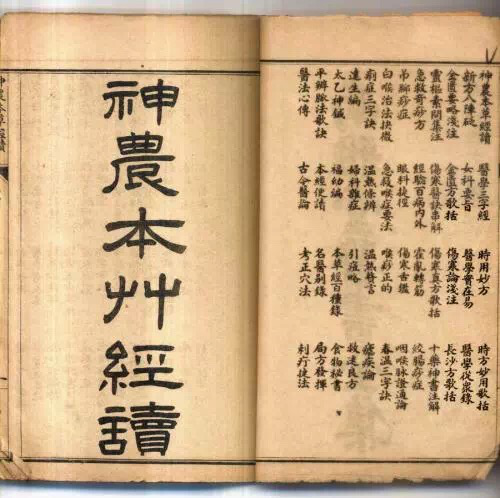 神農本草經讀 醫學三字經 時用妙方 時方妙用歌括
新方八陣砭 女科要旨 醫學實在易 醫學從衆錄
金匱要略淺注 金匱方歌括 傷寒論淺注 長沙方歌括
靈樞素問集注 傷寒醫訣串解 傷寒真方歌括 十藥神書注解
急救奇痧方 經驗百病內外 霍亂轉筋 絞腸痧症
弔腳痧症 眼科捷徑 傷寒舌鑑 咽喉脈證通論
白喉治法抉微 急救喉症要法 喉痧正的 春溫三字訣
痢症三字訣 溫熱條辨 溫熱贅言 瘧疾論
達生編 婦科雜症 引痘略 救迷良方
太乙神鍼 福幼編 本草經百種錄 食物秘書
平辨脈法歌訣 本經便讀 名醫別錄 局方發揮
醫法心傳 古今醫論 考正穴法 刺疔捷法
神農本艸經讀
神農本草經讀